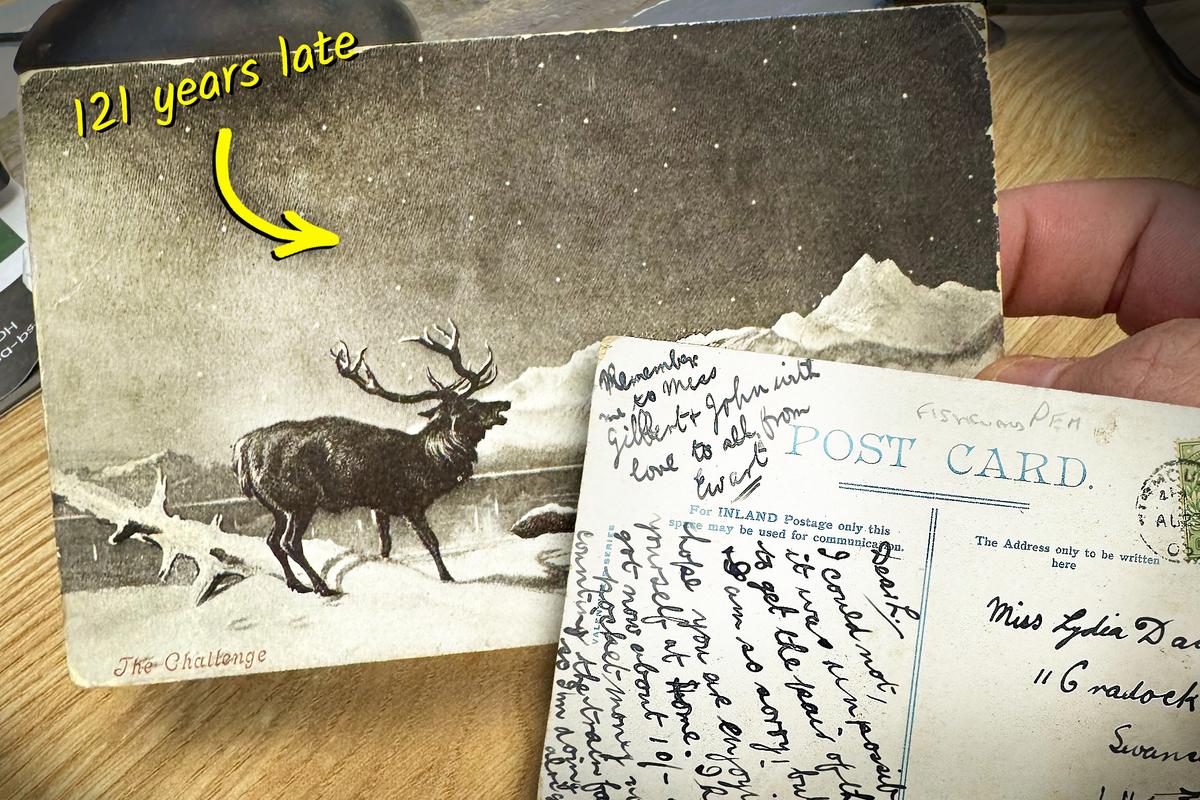 121 years late
The Challenge
Remember
me to Miss
Gilbert + John with
love to all, from
Ewart
FISHGUARD PEM
POST CARD.
For INLAND Postage only this
space may be used for communication.
The Address only to be written
here
VALENTINE'S SERIES
Miss Lydia Da
11 Cradock
Swans
Dear L.
I could not,
it was impossib
to get the pair of th
I am so sorry! bu
hope you are enjoyi
yourself at home.
got now about 10/-
pocket-money
counting the train fa
so I'm doing
AU